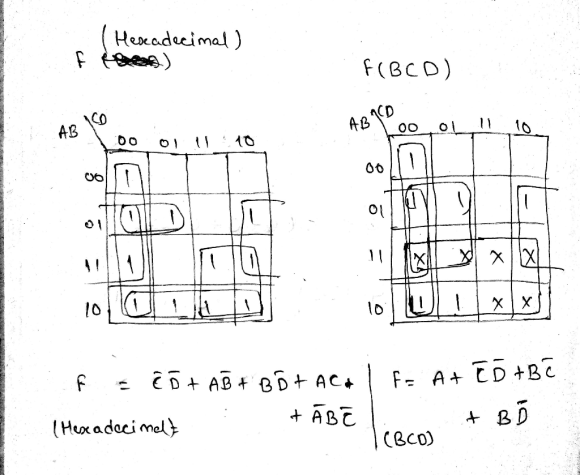 (Hexadecimal)
F
F(BCD)
AB \ CD
00 01 11 10
00 1
01 1 1 1
11 1 1 1
10 1 1 1 1
AB \ CD
00 01 11 10
00 1
01 1 1 1
11 x x x x
10 1 1 x x
F = C̅D̅ + AB̅ + BD̅ + AC +
(Hexadecimal) + A̅BC̅
F = A + C̅D̅ + BC̅
(BCD) + BD̅